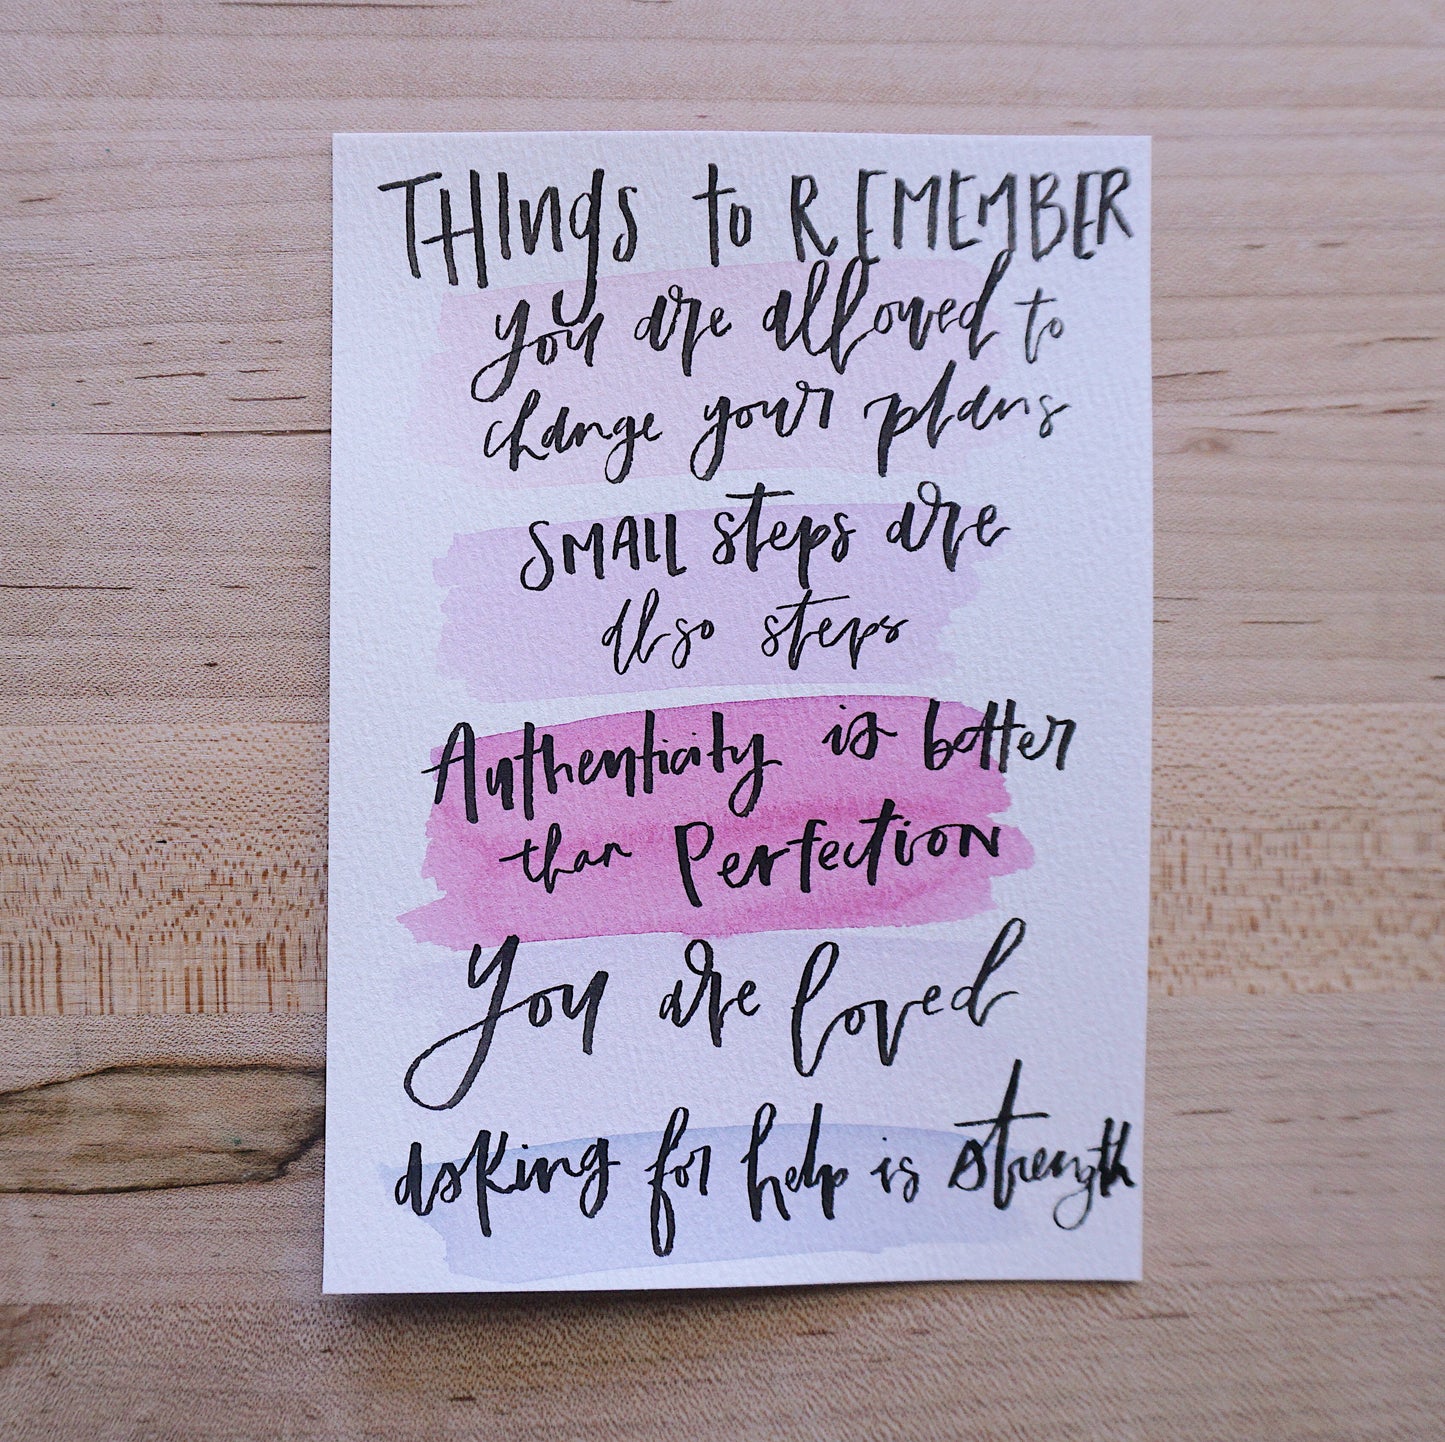 THINgs to REMEMBER
you are allowed to
change your plans
SMALL steps are
also steps
Authenticity is better
than Perfection
You are loved
asking for help is strength